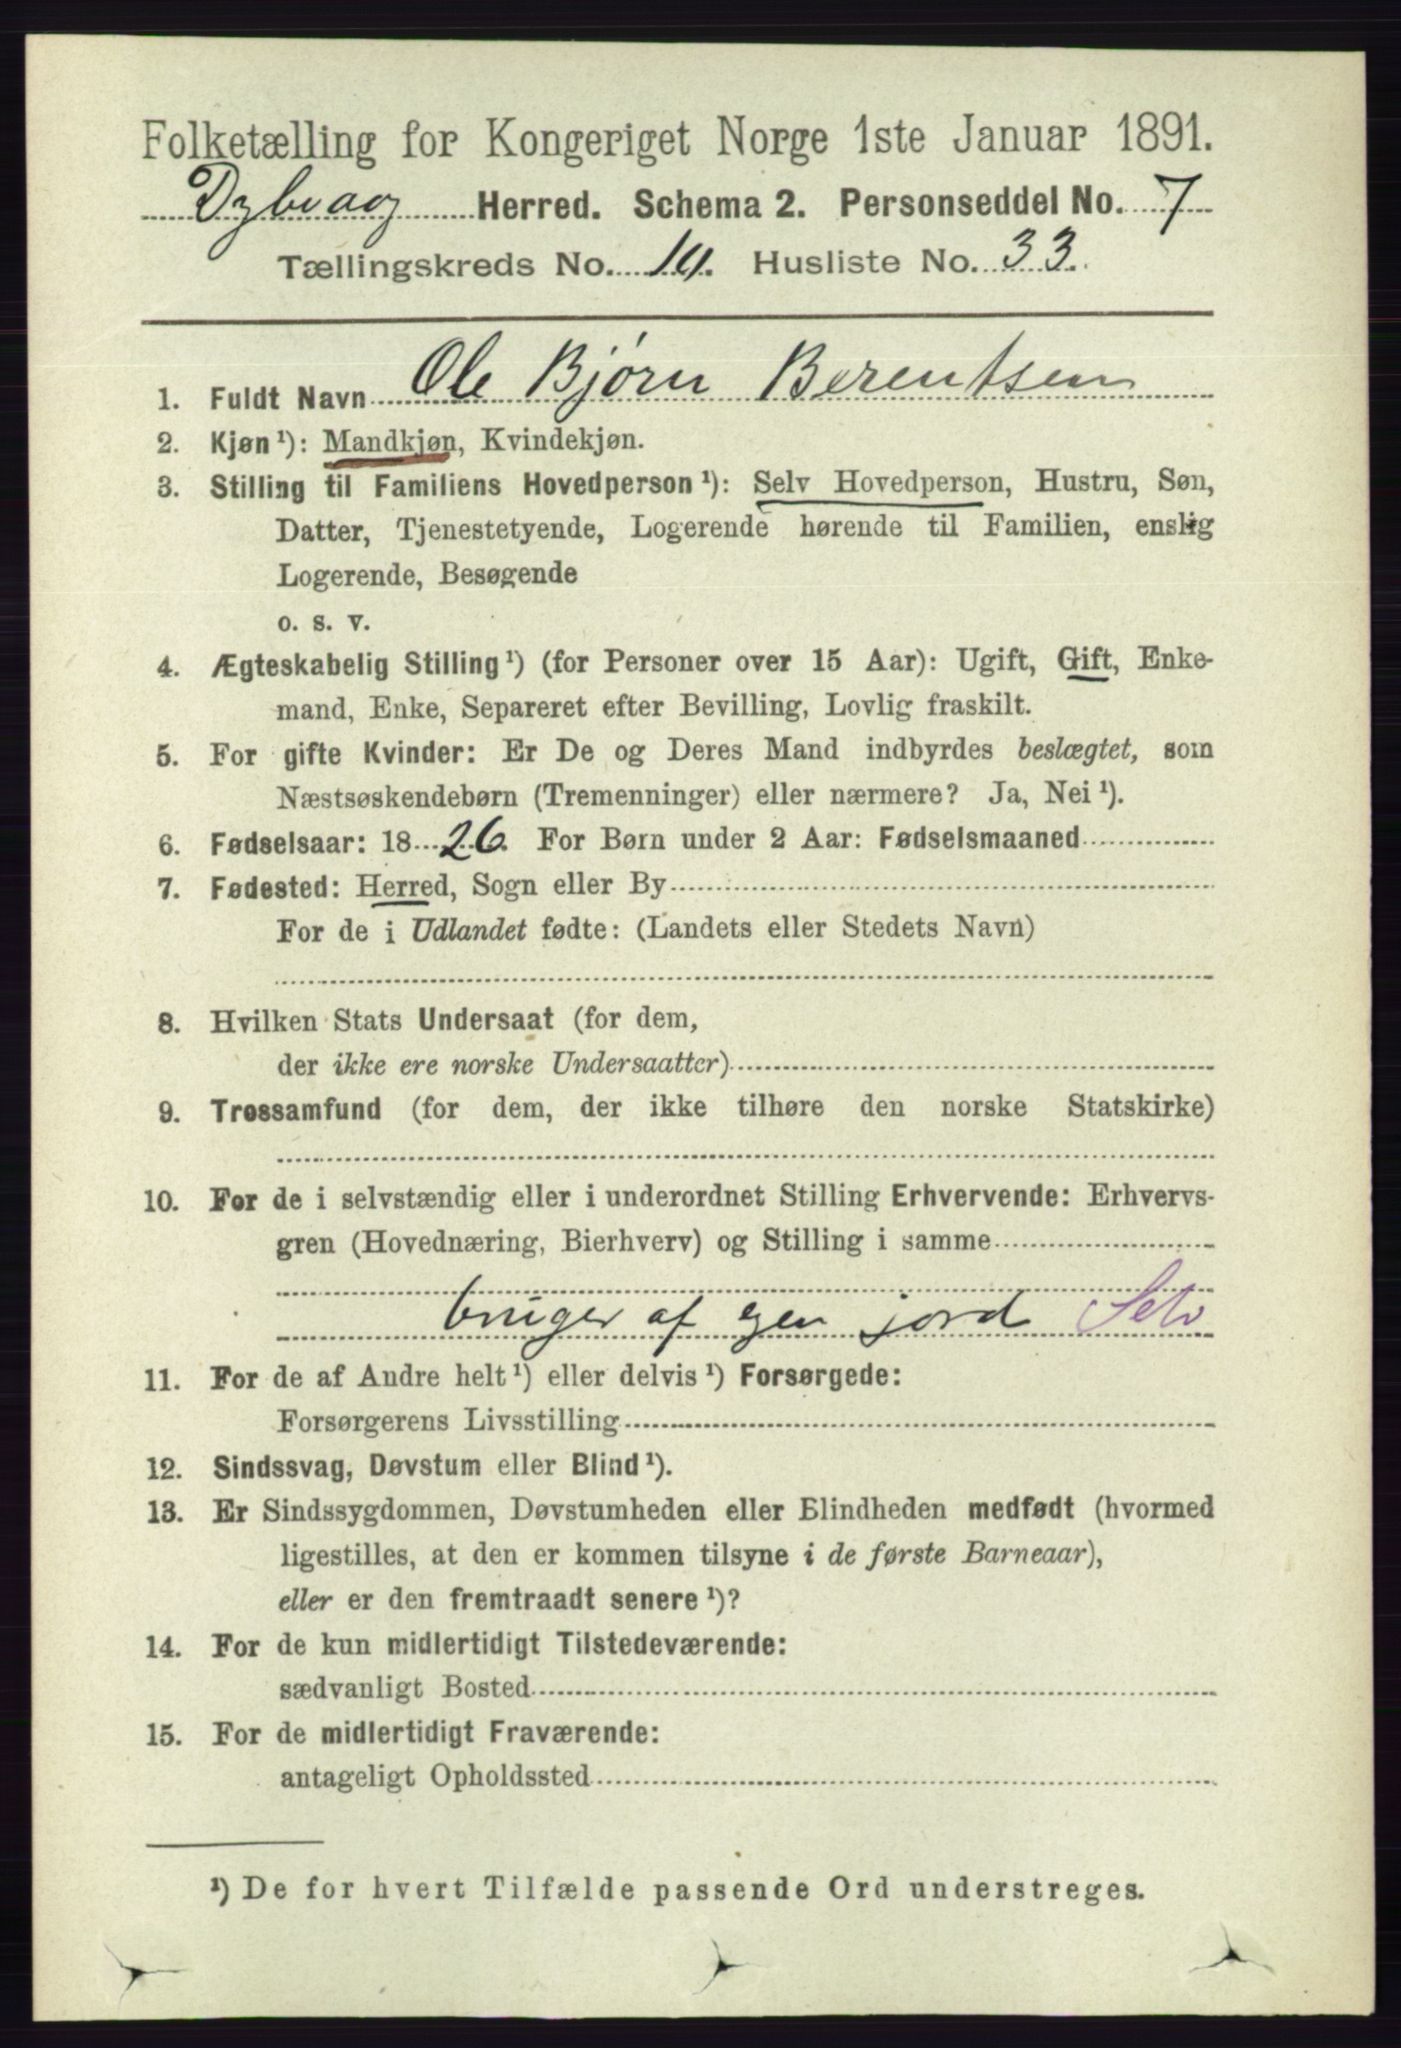 Folketælling for Kongeriget Norge 1ste Januar 1891.
Dybvaag Herred. Schema 2. Personseddel No. 7
Tællingskreds No. 14. Husliste No. 33.
1. Fuldt Navn Ole Bjørn Berentsen
2. Kjøn ¹): Mandkjøn, Kvindekjøn.
3. Stilling til Familiens Hovedperson ¹): Selv Hovedperson, Hustru, Søn,
Datter, Tjenestetyende, Logerende hørende til Familien, enslig
Logerende, Besøgende
o. s. v.
4. Ægteskabelig Stilling ¹) (for Personer over 15 Aar): Ugift, Gift, Enke-
mand, Enke, Separeret efter Bevilling, Lovlig fraskilt.
5. For gifte Kvinder: Er De og Deres Mand indbyrdes beslægtet, som
Næstsøskendebørn (Tremenninger) eller nærmere? Ja, Nei ¹).
6. Fødselsaar: 1826. For Børn under 2 Aar: Fødselsmaaned
7. Fødested: Herred, Sogn eller By
For de i Udlandet fødte: (Landets eller Stedets Navn)
8. Hvilken Stats Undersaat (for dem,
der ikke ere norske Undersaatter)
9. Trossamfund (for dem, der ikke tilhøre den norske Statskirke)
10. For de i selvstændig eller i underordnet Stilling Erhvervende: Erhvervs-
gren (Hovednæring, Bierhverv) og Stilling i samme
bruger af egen jord Selv
11. For de af Andre helt ¹) eller delvis ¹) Forsørgede:
Forsørgerens Livsstilling
12. Sindssvag, Døvstum eller Blind ¹).
13. Er Sindssygdommen, Døvstumheden eller Blindheden medfødt (hvormed
ligestilles, at den er kommen tilsyne i de første Barneaar),
eller er den fremtraadt senere ¹)?
14. For de kun midlertidigt Tilstedeværende:
sædvanligt Bosted
15. For de midlertidigt Fraværende:
antageligt Opholdssted
¹) De for hvert Tilfælde passende Ord understreges.